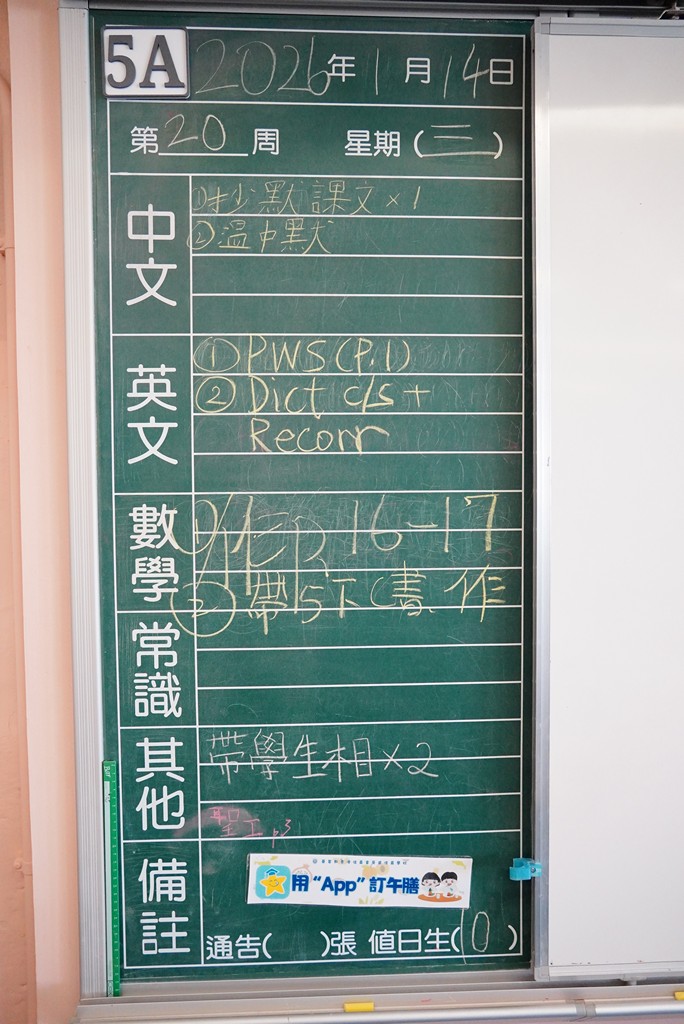 5A 2026年1月14日
第20周 星期(三)
中文
①抄默課文×1
②溫中默
英文
① PWS(P.1)
② Dict c/s +
Recorr
數學
①作P. 16-17
②帶5下(書、作
常識
其他
帶學生相×2
聖工p3
備註
用“App”訂午膳
通告( )張 值日生(10)